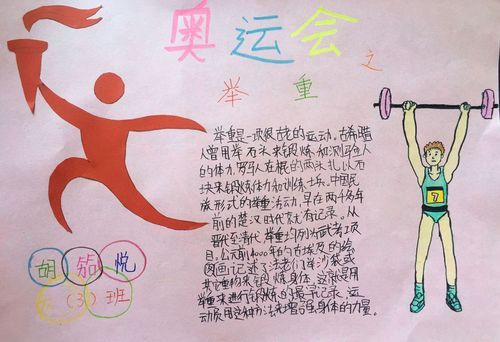 奥运会
之
举重
举重是一项很古老的运动。古希腊
人曾用举石头来锻炼和测验人
的体力，罗马人在棍的两头扎以石
块来锻炼体力和训练士兵。中国民
族形式的举重活动，早在两千多年
前的楚汉时代就有记录。从
晋代至清代，举重均列为武考项
目。公元前4000年的古埃及的绘
图画记述了法老们举沙袋或
其它重物来锻炼身体，这就是用
举重来进行锻炼的最早记录。运
动员用这种办法来增强身体的力量。
7
胡 悦
(3)班